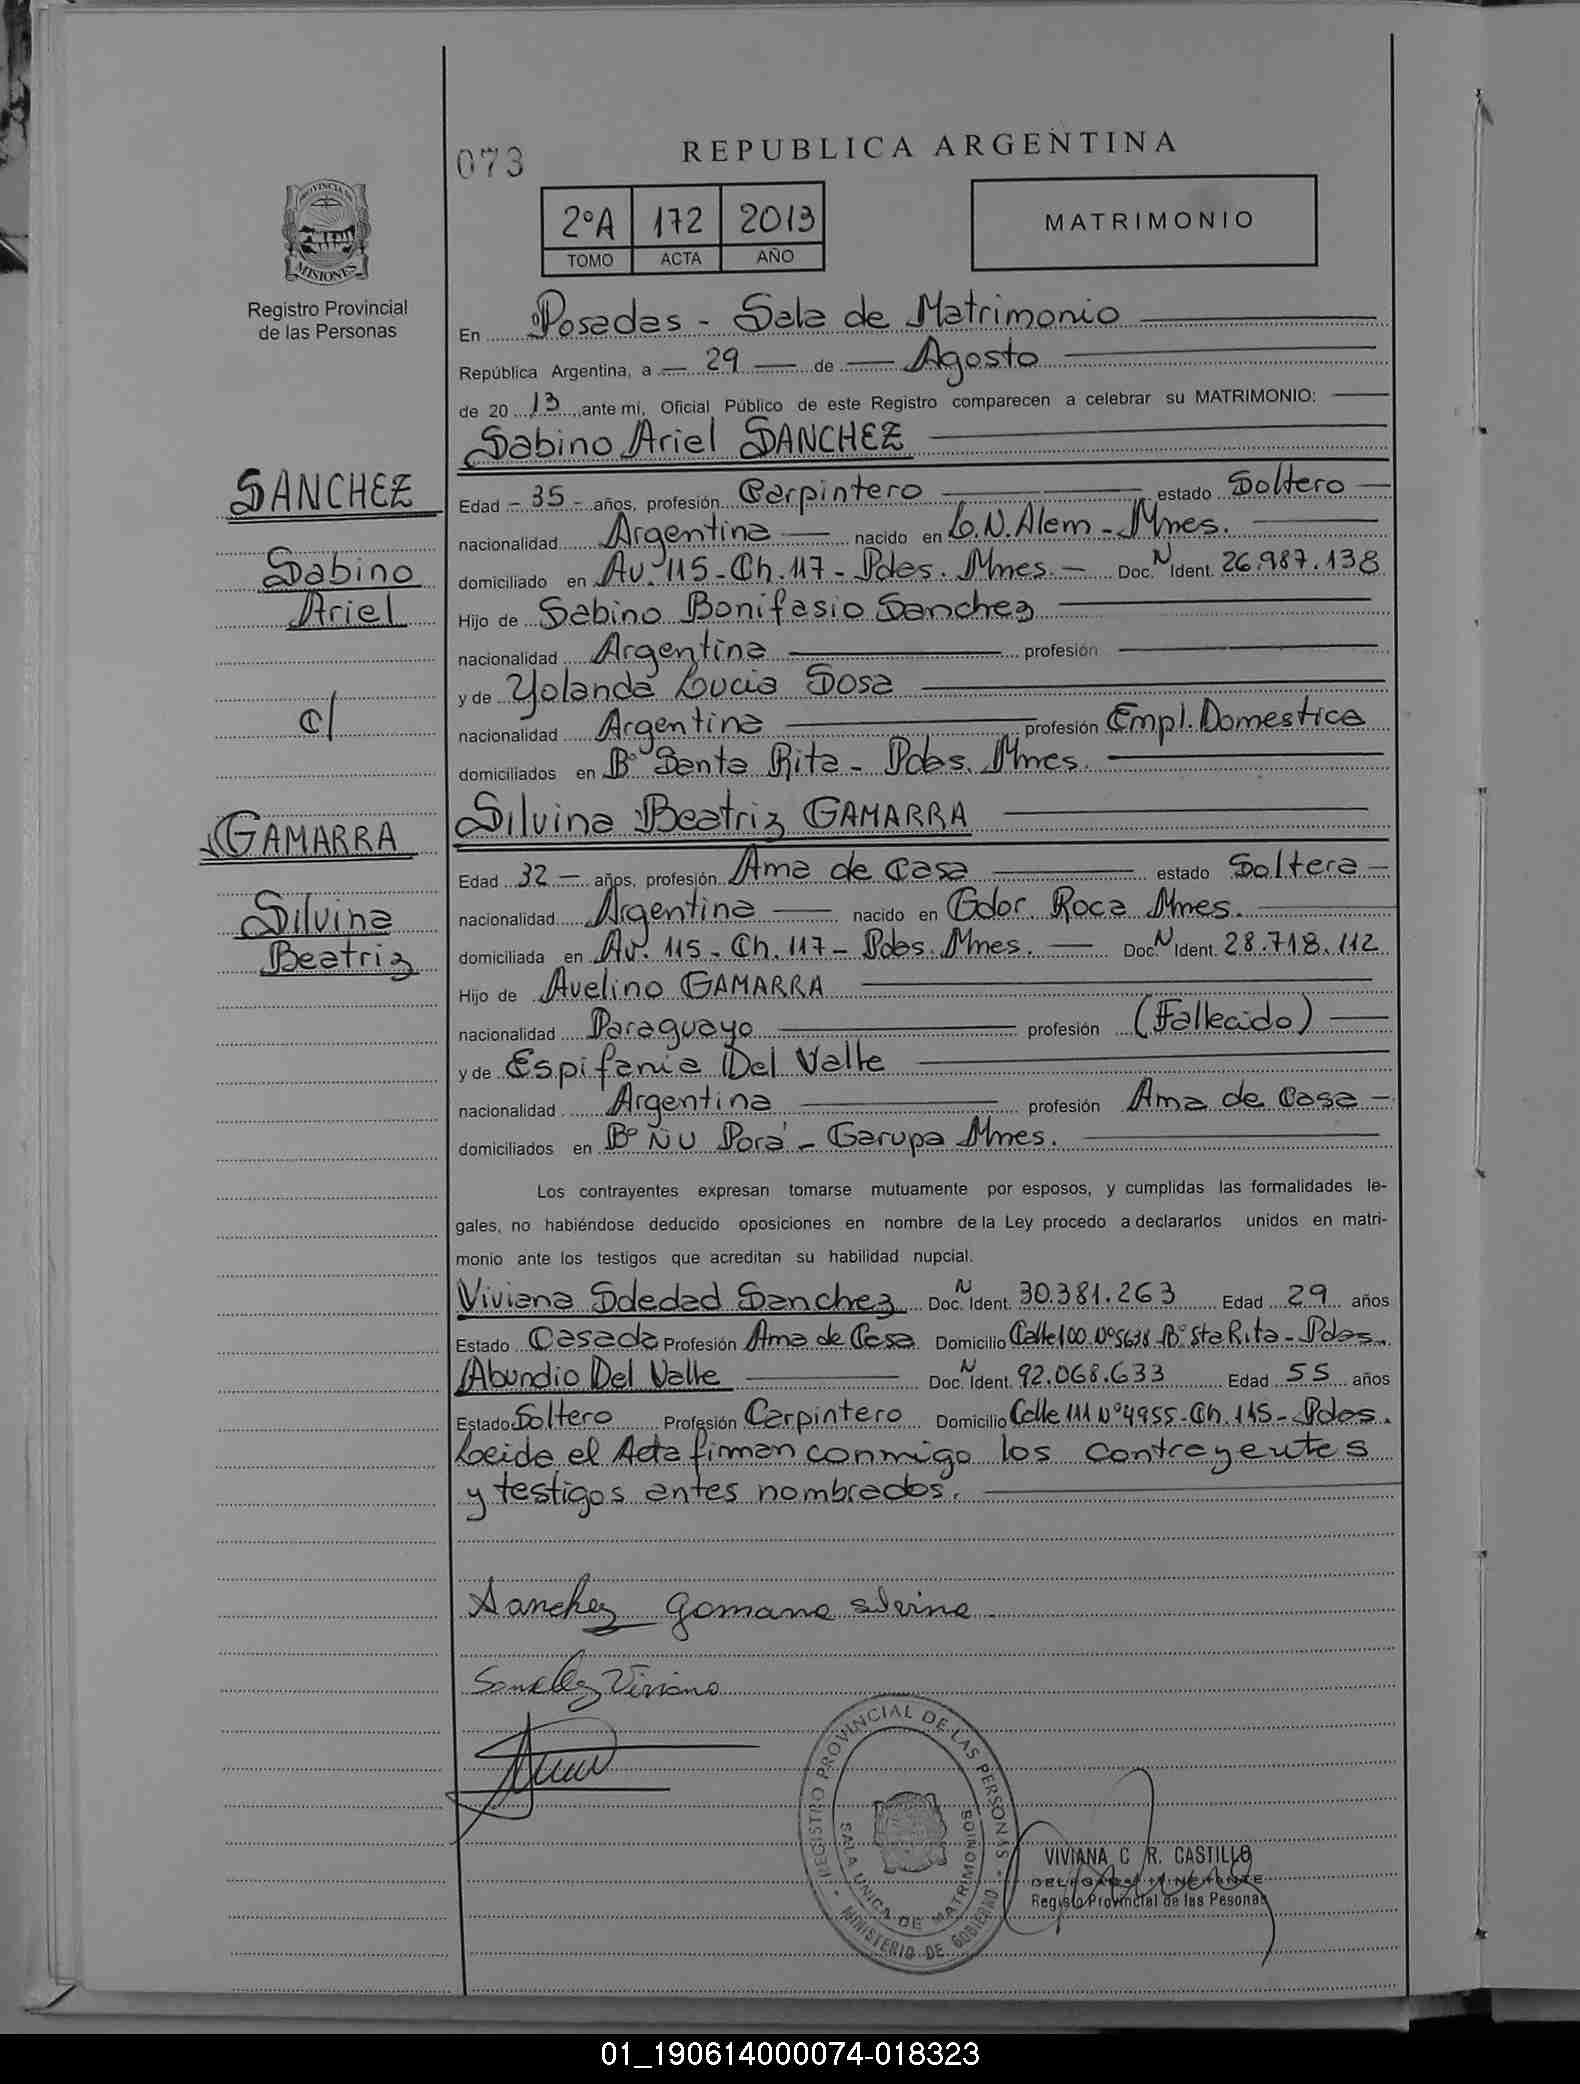 073
REPUBLICA ARGENTINA
2ºA 172 2013
TOMO ACTA AÑO
MATRIMONIO
PROVINCIA DE
MISIONES
Registro Provincial
de las Personas
En Posadas - Sala de Matrimonio
República Argentina, a 29 de Agosto
de 20 13 ante mi, Oficial Público de este Registro comparecen a celebrar su MATRIMONIO:
Sabino Ariel SANCHEZ
SANCHEZ
Sabino
Ariel
c/
GAMARRA
Silvina
Beatriz
Edad - 35 - años, profesión Carpintero estado Soltero
nacionalidad Argentina nacido en L.N. Alem - Mnes.
domiciliado en Av. 115 - Ch. 117 - Pdas. Mnes. - Doc. N Ident. 26.987.138
Hijo de Sabino Bonifasio Sanchez
nacionalidad Argentina profesión
y de Yolanda Lucia Sosa
nacionalidad Argentina profesión Empl. Domestica
domiciliados en Bº Santa Rita - Pdas. Mnes.
Silvina Beatriz GAMARRA
Edad 32 - años, profesión Ama de Casa estado Soltera
nacionalidad Argentina nacido en Gdor. Roca Mnes.
domiciliada en Av. 115 - Ch. 117 - Pdas. Mnes. Doc. N Ident. 28.718.112
Hijo de Avelino GAMARRA
nacionalidad Paraguayo profesión (Fallecido)
y de Espifania Del Valle
nacionalidad Argentina profesión Ama de Casa
domiciliados en Bº Ñu Porá - Garupa Mnes.
Los contrayentes expresan tomarse mutuamente por esposos, y cumplidas las formalidades le-
gales, no habiéndose deducido oposiciones en nombre de la Ley procedo a declararlos unidos en matri-
monio ante los testigos que acreditan su habilidad nupcial.
Viviana Soledad Sanchez Doc. N Ident. 30.381.263 Edad 29 años
Estado Casada Profesión Ama de Casa Domicilio Calle 100 Nº 5638 Bº Sta Rita - Pdas.
Abundio Del Valle Doc. N Ident. 92.068.633 Edad 55 años
Estado Soltero Profesión Carpintero Domicilio Calle 111 Nº 4955 - Ch. 115 - Pdas.
Leida el Acta firman conmigo los contrayentes
y testigos antes nombrados.
Sanchez Gamarra Silvina
Sanchez Viviana
REGISTRO PROVINCIAL DE LAS PERSONAS
SALA UNICA DE MATRIMONIOS
MINISTERIO DE GOBIERNO
VIVIANA C R. CASTILLO
DELEGADA ITINERANTE
Registro Provincial de las Pesonas
01_190614000074-018323